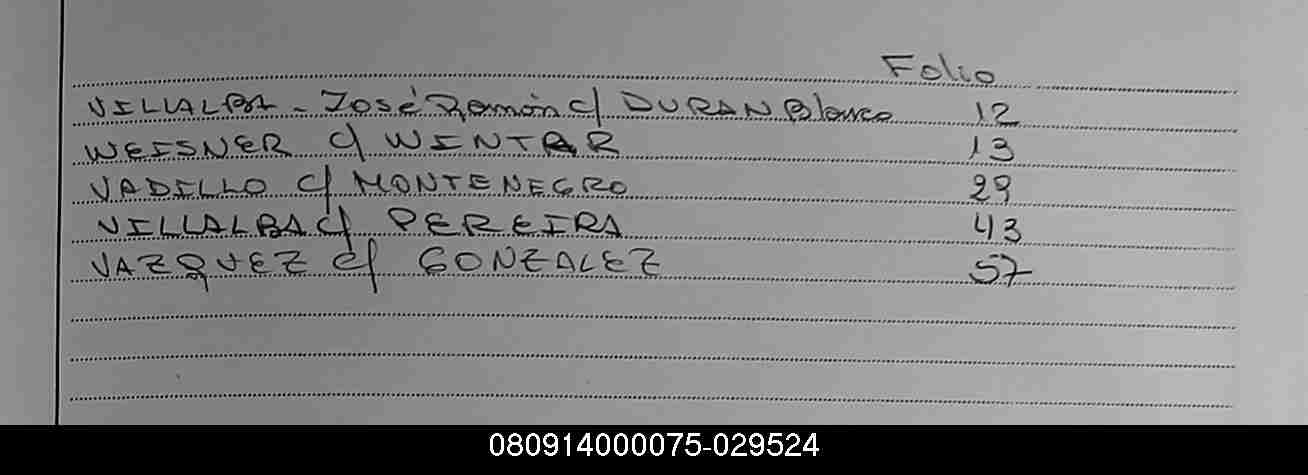 Folio
VILLALBA - José Ramón c/ DURAN Blanco 12
WEISNER c/ WINTAR 13
VADILLO c/ MONTENEGRO 29
VILLALBA c/ PEREIRA 43
VAZQUEZ c/ GONZALEZ 57
080914000075-029524